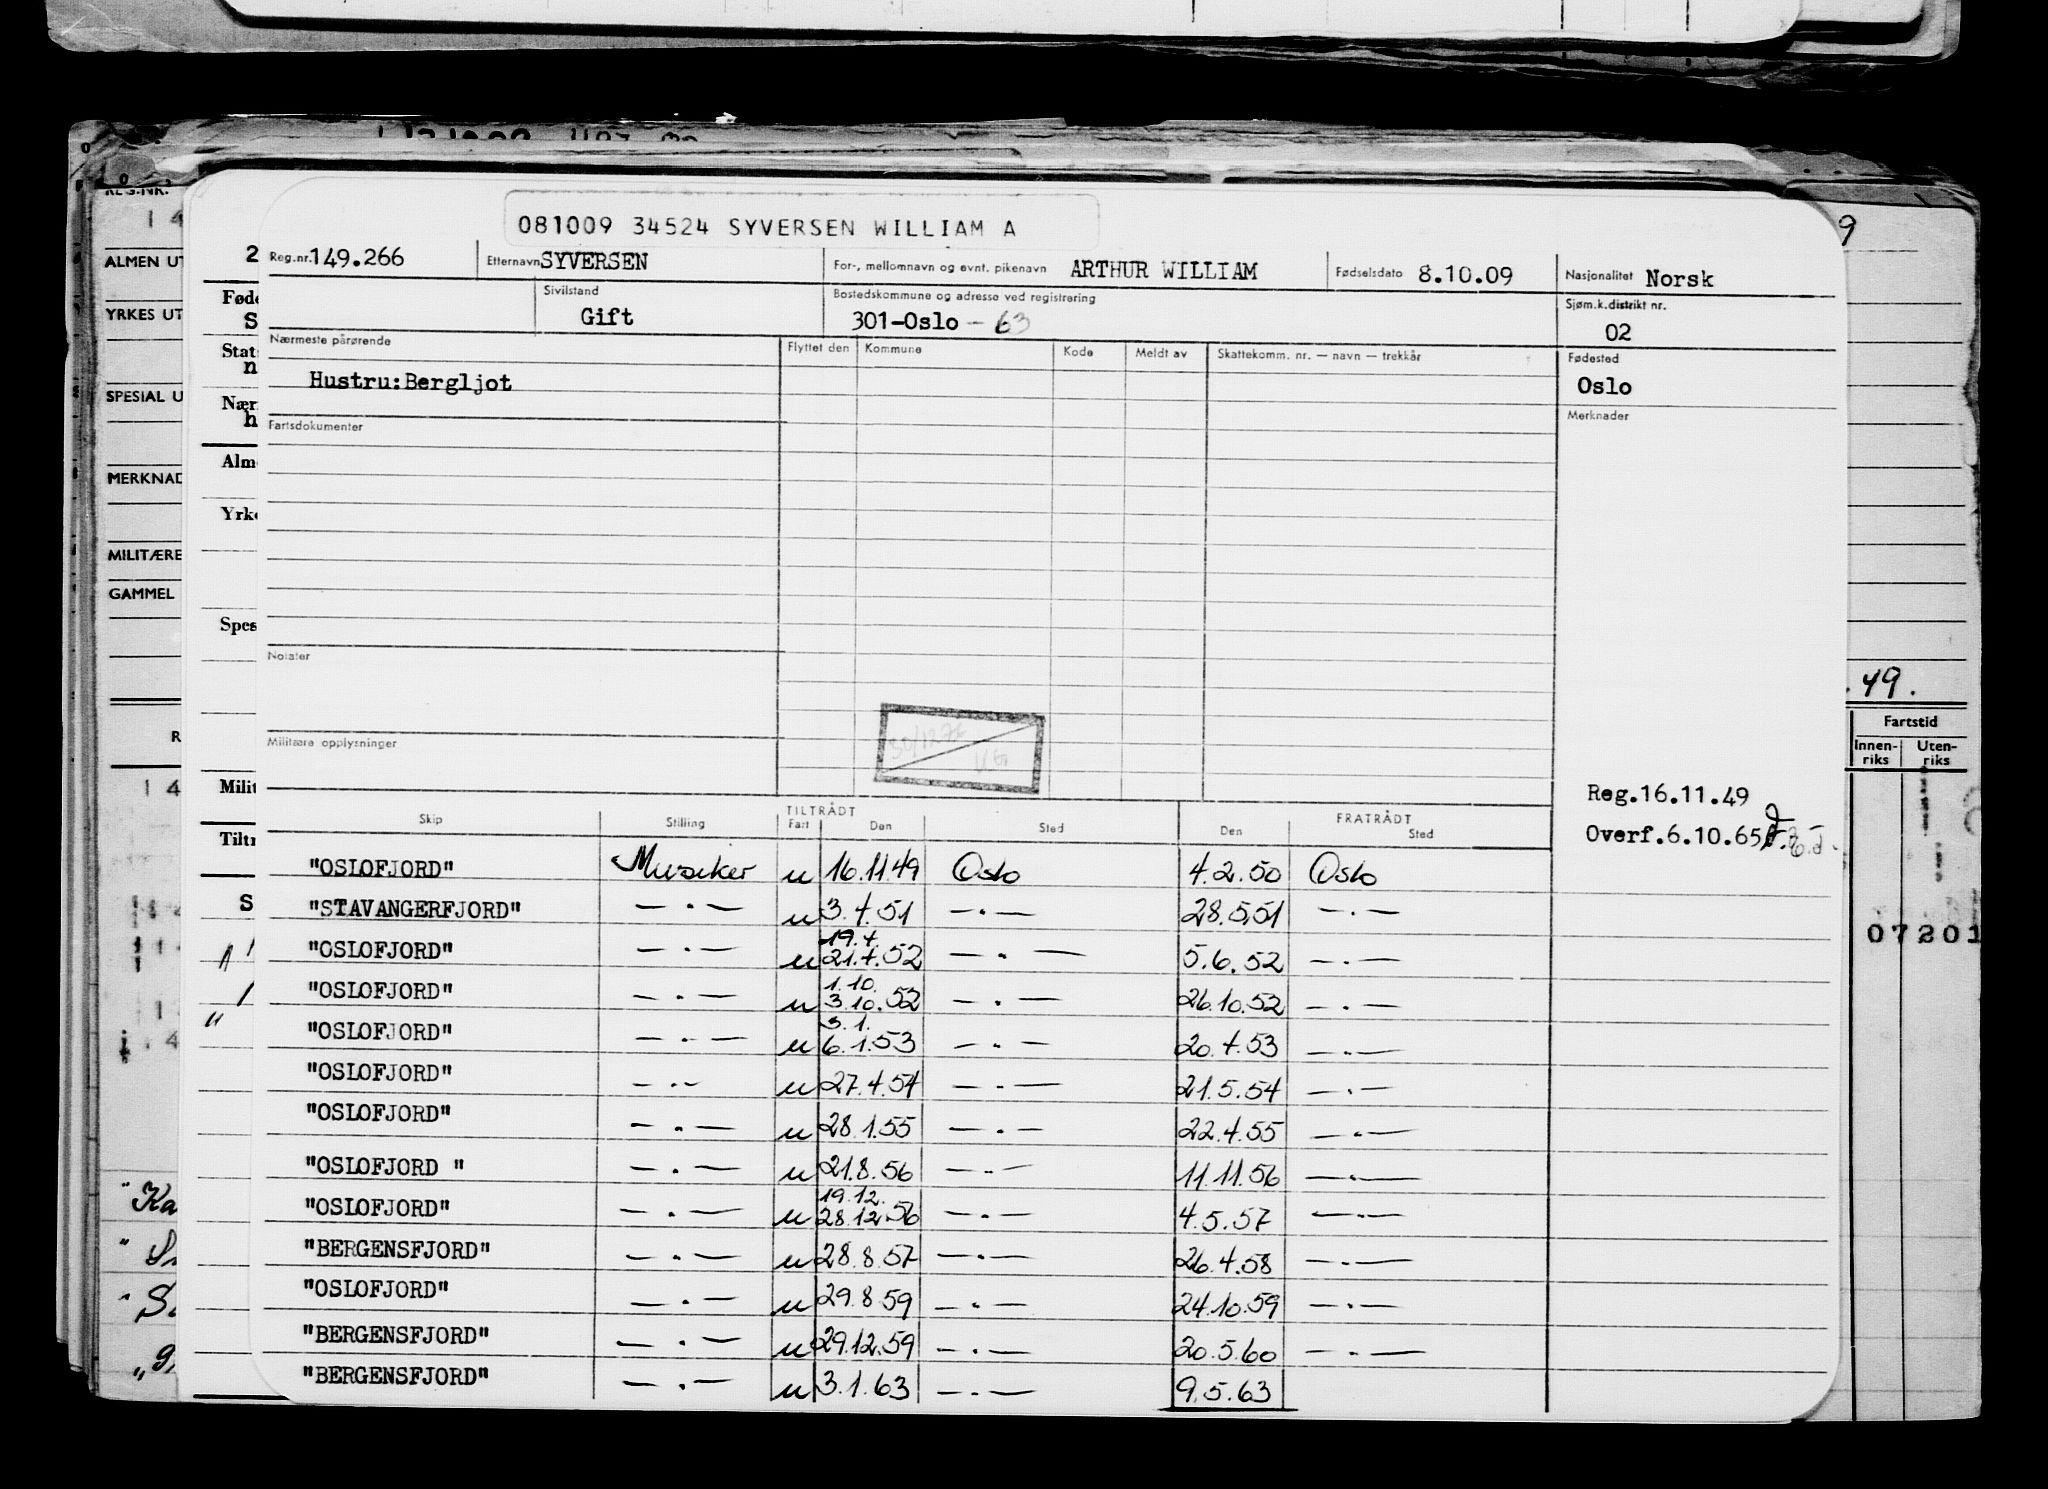 081009 34524 SYVERSEN WILLIAM A
Reg.nr. 149.266 Etternavn SYVERSEN For-, mellomnavn og evnt. pikenavn ARTHUR WILLIAM Fødselsdato 8.10.09 Nasjonalitet Norsk
Sivilstand Gift Bostedskommune og adresse ved registrering 301-Oslo - 63 Sjøm.k.distrikt nr. 02
Nærmeste pårørende Flyttet den Kommune Kode Meldt av Skattekomm. nr. — navn — trekkår Fødested
Hustru:Bergljot Oslo
Fartsdokumenter Merknader
Notater
Militære opplysninger
Reg.16.11.49
Overf.6.10.65
TILTRÅDT FRATRÅDT
Skip Stilling Fart Den Sted Den Sted
"OSLOFJORD" Musiker u 16.11.49 Oslo 4.2.50 Oslo
"STAVANGERFJORD" — . — u 3.4.51 — . — 28.5.51 — . —
19.4.
"OSLOFJORD" — . — u 21.4.52 — . — 5.6.52 — . —
1.10.
"OSLOFJORD" — . — u 3.10.52 — . — 26.10.52 — . —
3.1.
"OSLOFJORD" — . — u 6.1.53 — . — 20.4.53 — . —
"OSLOFJORD" — . — u 27.4.54 — . — 21.5.54 — . —
"OSLOFJORD" — . — u 28.1.55 — . — 22.4.55 — . —
"OSLOFJORD " — . — u 21.8.56 — . — 11.11.56 — . —
19.12.
"OSLOFJORD" — . — u 28.12.56 — . — 4.5.57 — . —
"BERGENSFJORD" — . — u 28.8.57 — . — 26.4.58 — . —
"OSLOFJORD" — . — u 29.8.59 — . — 24.10.59 — . —
"BERGENSFJORD" — . — u 29.12.59 — . — 20.5.60 — . —
"BERGENSFJORD" — . — u 3.1.63 — . — 9.5.63
REG.NR.
14
ALMEN UT
YRKES UT
SPESIAL U
MERKNAD
MILITÆRE
GAMMEL
2
Føde
S
Stats
n
Nær
h
Alme
Yrke
Spes
Milit
Tiltr
S
9
.49.
Fartstid
Innen-riks Uten-riks
07201